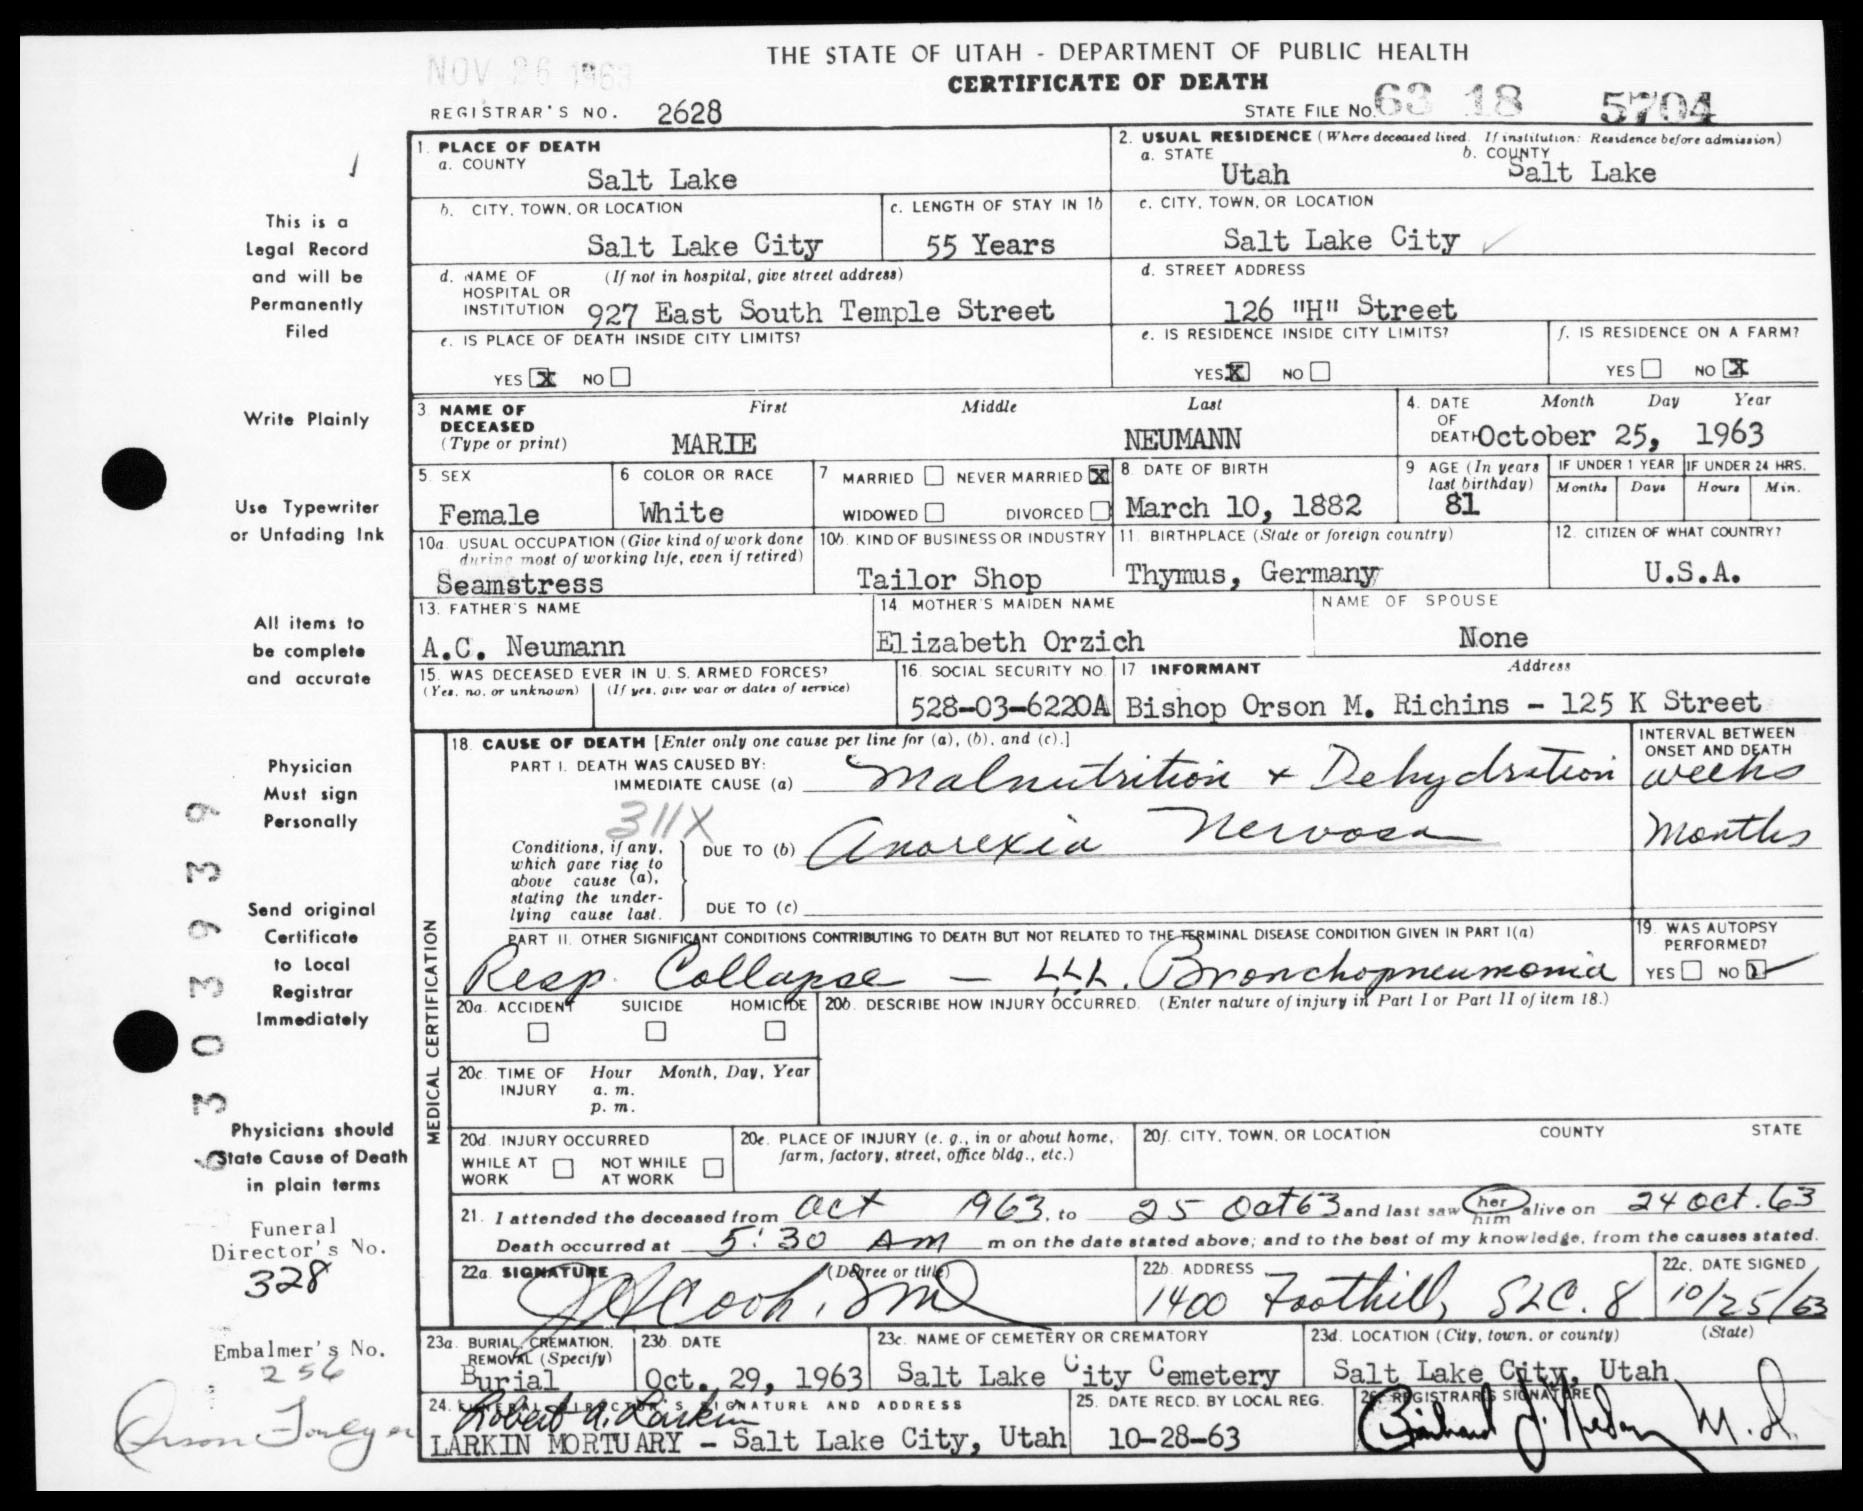 THE STATE OF UTAH - DEPARTMENT OF PUBLIC HEALTH
NOV 26 1963
CERTIFICATE OF DEATH
REGISTRAR'S NO. 2628
STATE FILE No. 63 18 5704
1. PLACE OF DEATH
a. COUNTY
Salt Lake
2. USUAL RESIDENCE (Where deceased lived. If institution: Residence before admission)
a. STATE
Utah
b. COUNTY
Salt Lake
b. CITY, TOWN, OR LOCATION
Salt Lake City
c. LENGTH OF STAY IN 1b
55 Years
c. CITY, TOWN, OR LOCATION
Salt Lake City
d. NAME OF HOSPITAL OR INSTITUTION (If not in hospital, give street address)
927 East South Temple Street
d. STREET ADDRESS
126 "H" Street
e. IS PLACE OF DEATH INSIDE CITY LIMITS?
YES X NO
e. IS RESIDENCE INSIDE CITY LIMITS?
YES X NO
f. IS RESIDENCE ON A FARM?
YES NO X
3. NAME OF DECEASED (Type or print)
First Middle Last
MARIE NEUMANN
4. DATE OF DEATH Month Day Year
October 25, 1963
5. SEX
Female
6 COLOR OR RACE
White
7 MARRIED NEVER MARRIED X
WIDOWED DIVORCED
8 DATE OF BIRTH
March 10, 1882
9 AGE (In years last birthday)
81
IF UNDER 1 YEAR
Months Days
IF UNDER 24 HRS.
Hours Min.
10a. USUAL OCCUPATION (Give kind of work done during most of working life, even if retired)
Seamstress
10b. KIND OF BUSINESS OR INDUSTRY
Tailor Shop
11. BIRTHPLACE (State or foreign country)
Thymus, Germany
12. CITIZEN OF WHAT COUNTRY?
U.S.A.
13. FATHER'S NAME
A.C. Neumann
14 MOTHER'S MAIDEN NAME
Elizabeth Orzich
NAME OF SPOUSE
None
15. WAS DECEASED EVER IN U.S. ARMED FORCES?
(Yes, no, or unknown) (If yes, give war or dates of service)
16. SOCIAL SECURITY NO.
528-03-6220A
17 INFORMANT Address
Bishop Orson M. Richins - 125 K Street
18. CAUSE OF DEATH [Enter only one cause per line for (a), (b), and (c).]
INTERVAL BETWEEN ONSET AND DEATH
PART I. DEATH WAS CAUSED BY:
IMMEDIATE CAUSE (a) Malnutrition + Dehydration weeks
311X
Conditions, if any, which gave rise to above cause (a), stating the underlying cause last.
DUE TO (b) Anorexia Nervosa Months
DUE TO (c)
PART II. OTHER SIGNIFICANT CONDITIONS CONTRIBUTING TO DEATH BUT NOT RELATED TO THE TERMINAL DISEASE CONDITION GIVEN IN PART I(a)
Resp. Collapse - L.L.L. Bronchopneumonia
19. WAS AUTOPSY PERFORMED?
YES NO
MEDICAL CERTIFICATION
20a. ACCIDENT SUICIDE HOMICIDE
20b. DESCRIBE HOW INJURY OCCURRED. (Enter nature of injury in Part I or Part II of item 18.)
20c. TIME OF INJURY Hour Month, Day, Year
a. m.
p. m.
20d. INJURY OCCURRED
WHILE AT WORK NOT WHILE AT WORK
20e. PLACE OF INJURY (e. g., in or about home, farm, factory, street, office bldg., etc.)
20f. CITY, TOWN, OR LOCATION COUNTY STATE
21. I attended the deceased from Oct 1963, to 25 Oct 63 and last saw her him alive on 24 Oct. 63
Death occurred at 5:30 AM m on the date stated above; and to the best of my knowledge, from the causes stated.
22a. SIGNATURE (Degree or title)
22b. ADDRESS
1400 Foothill, SLC. 8
22c. DATE SIGNED
10/25/63
23a. BURIAL, CREMATION, REMOVAL (Specify)
Burial
23b. DATE
Oct. 29, 1963
23c. NAME OF CEMETERY OR CREMATORY
Salt Lake City Cemetery
23d. LOCATION (City, town, or county) (State)
Salt Lake City, Utah
24. FUNERAL DIRECTOR'S SIGNATURE AND ADDRESS
Robert A. Larkin
LARKIN MORTUARY - Salt Lake City, Utah
25. DATE RECD. BY LOCAL REG.
10-28-63
26. REGISTRAR'S SIGNATURE
M.D.
This is a
Legal Record
and will be
Permanently
Filed
Write Plainly
Use Typewriter
or Unfading Ink
All items to
be complete
and accurate
Physician
Must sign
Personally
Send original
Certificate
to Local
Registrar
Immediately
Physicians should
State Cause of Death
in plain terms
Funeral
Director's No.
328
Embalmer's No.
256